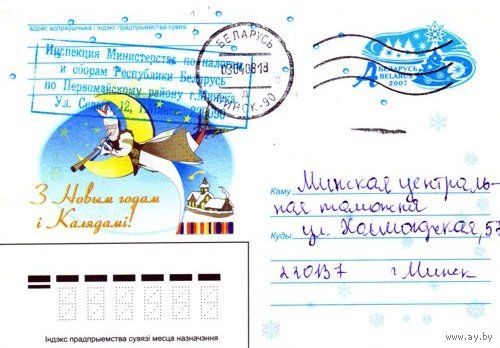 адрас адпраўшчыка і індэкс прадпрыемства сувязі
Инспекция Министерства по налогам
и сборам Республики Беларусь
по Первомайскому району г.Минска
Ул. 12, 220050
БЕЛАРУСЬ
03.04.08 18
МИНСК-90
А БЕЛАРУСЬ
BELARUS
2007
З Новым годам
і Калядамі!
Каму Минская централь-
ная таможня
Куды ул. 57
220137 г. Минск
Індэкс прадпрыемства сувязі месца назначэння
www.ay.by